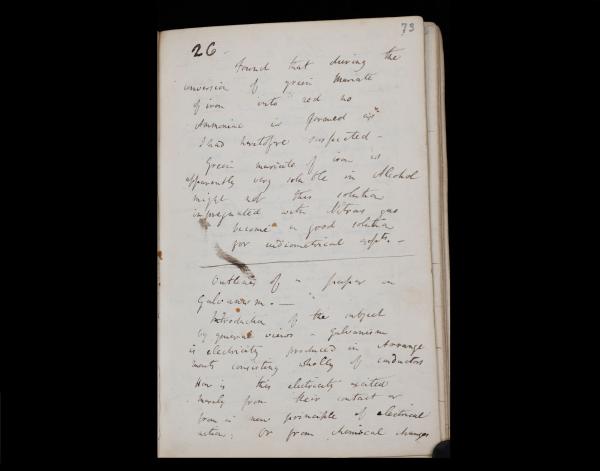 73
26
Found that during the
conversion of green Muriate
of iron into red no
Ammoniac is formed as
I had heretofore suspected -
Green muriate of iron is
apparently very soluble in Alcohol
might not this solution
impregnated with Nitrous gas
become a good solution
for eudiometrical expts. -
Outlines of a paper on
Galvanism. -
Introduction of the subject
by general views - Galvanism
is electricity produced in Arrange
ments consisting wholly of conductors
How is this electricity excited
merely from their contact or
from a new principle of electrical
action. Or from chemical changes